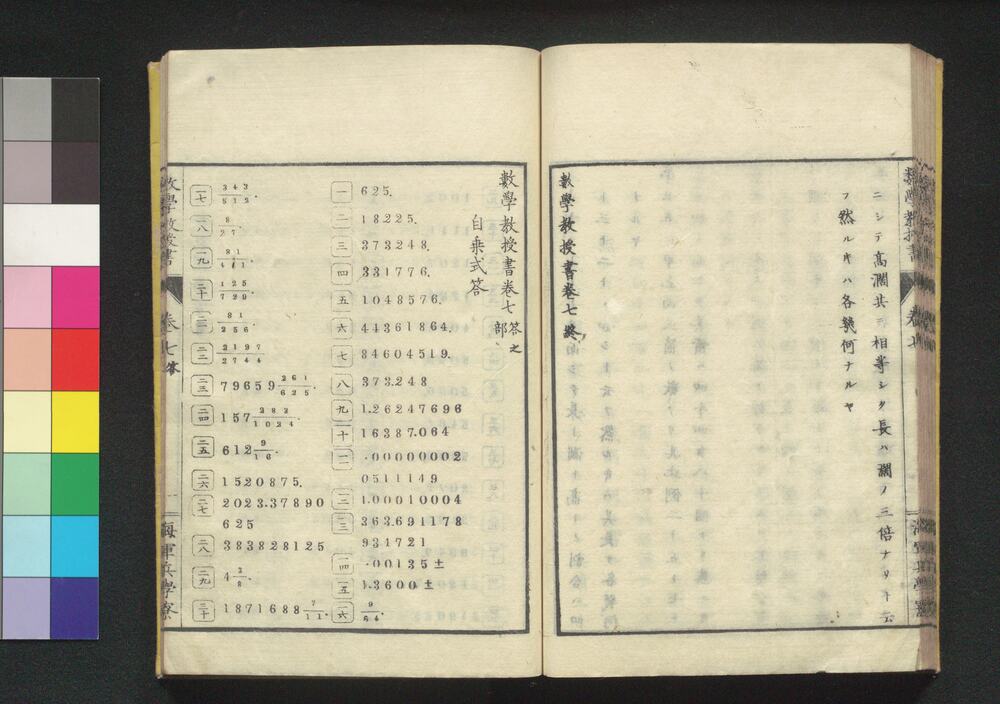 ニシテ高濶共ニ相等シク長ハ濶ノ三倍ナリト云
フ然ルキハ各幾何ナルヤ
數學教授書卷七終
數學教授書卷七答之部
自乗式答
一 625.
二 18225.
三 373248.
四 331776.
五 1048576.
六 44361864.
七 84604519.
八 373.248
九 1.26247696
十 16387.064
一一 .00000002
0511149
一二 1.00010004
一三 363.691178
931721
一四 .00135±
一五 1.3600±
一六 9/64.
一七 343/512.
一八 8/27.
一九 81/461.
二十 125/729.
二一 81/256.
二二 2197/2744.
二三 79659 261/625.
二四 157 282/1024.
二五 612 9/16.
二六 1520875.
二七 2023.37890
625
二八 383828125
二九 4 3/8.
三十 1871688 7/11.
卷七 答
海軍兵學寮